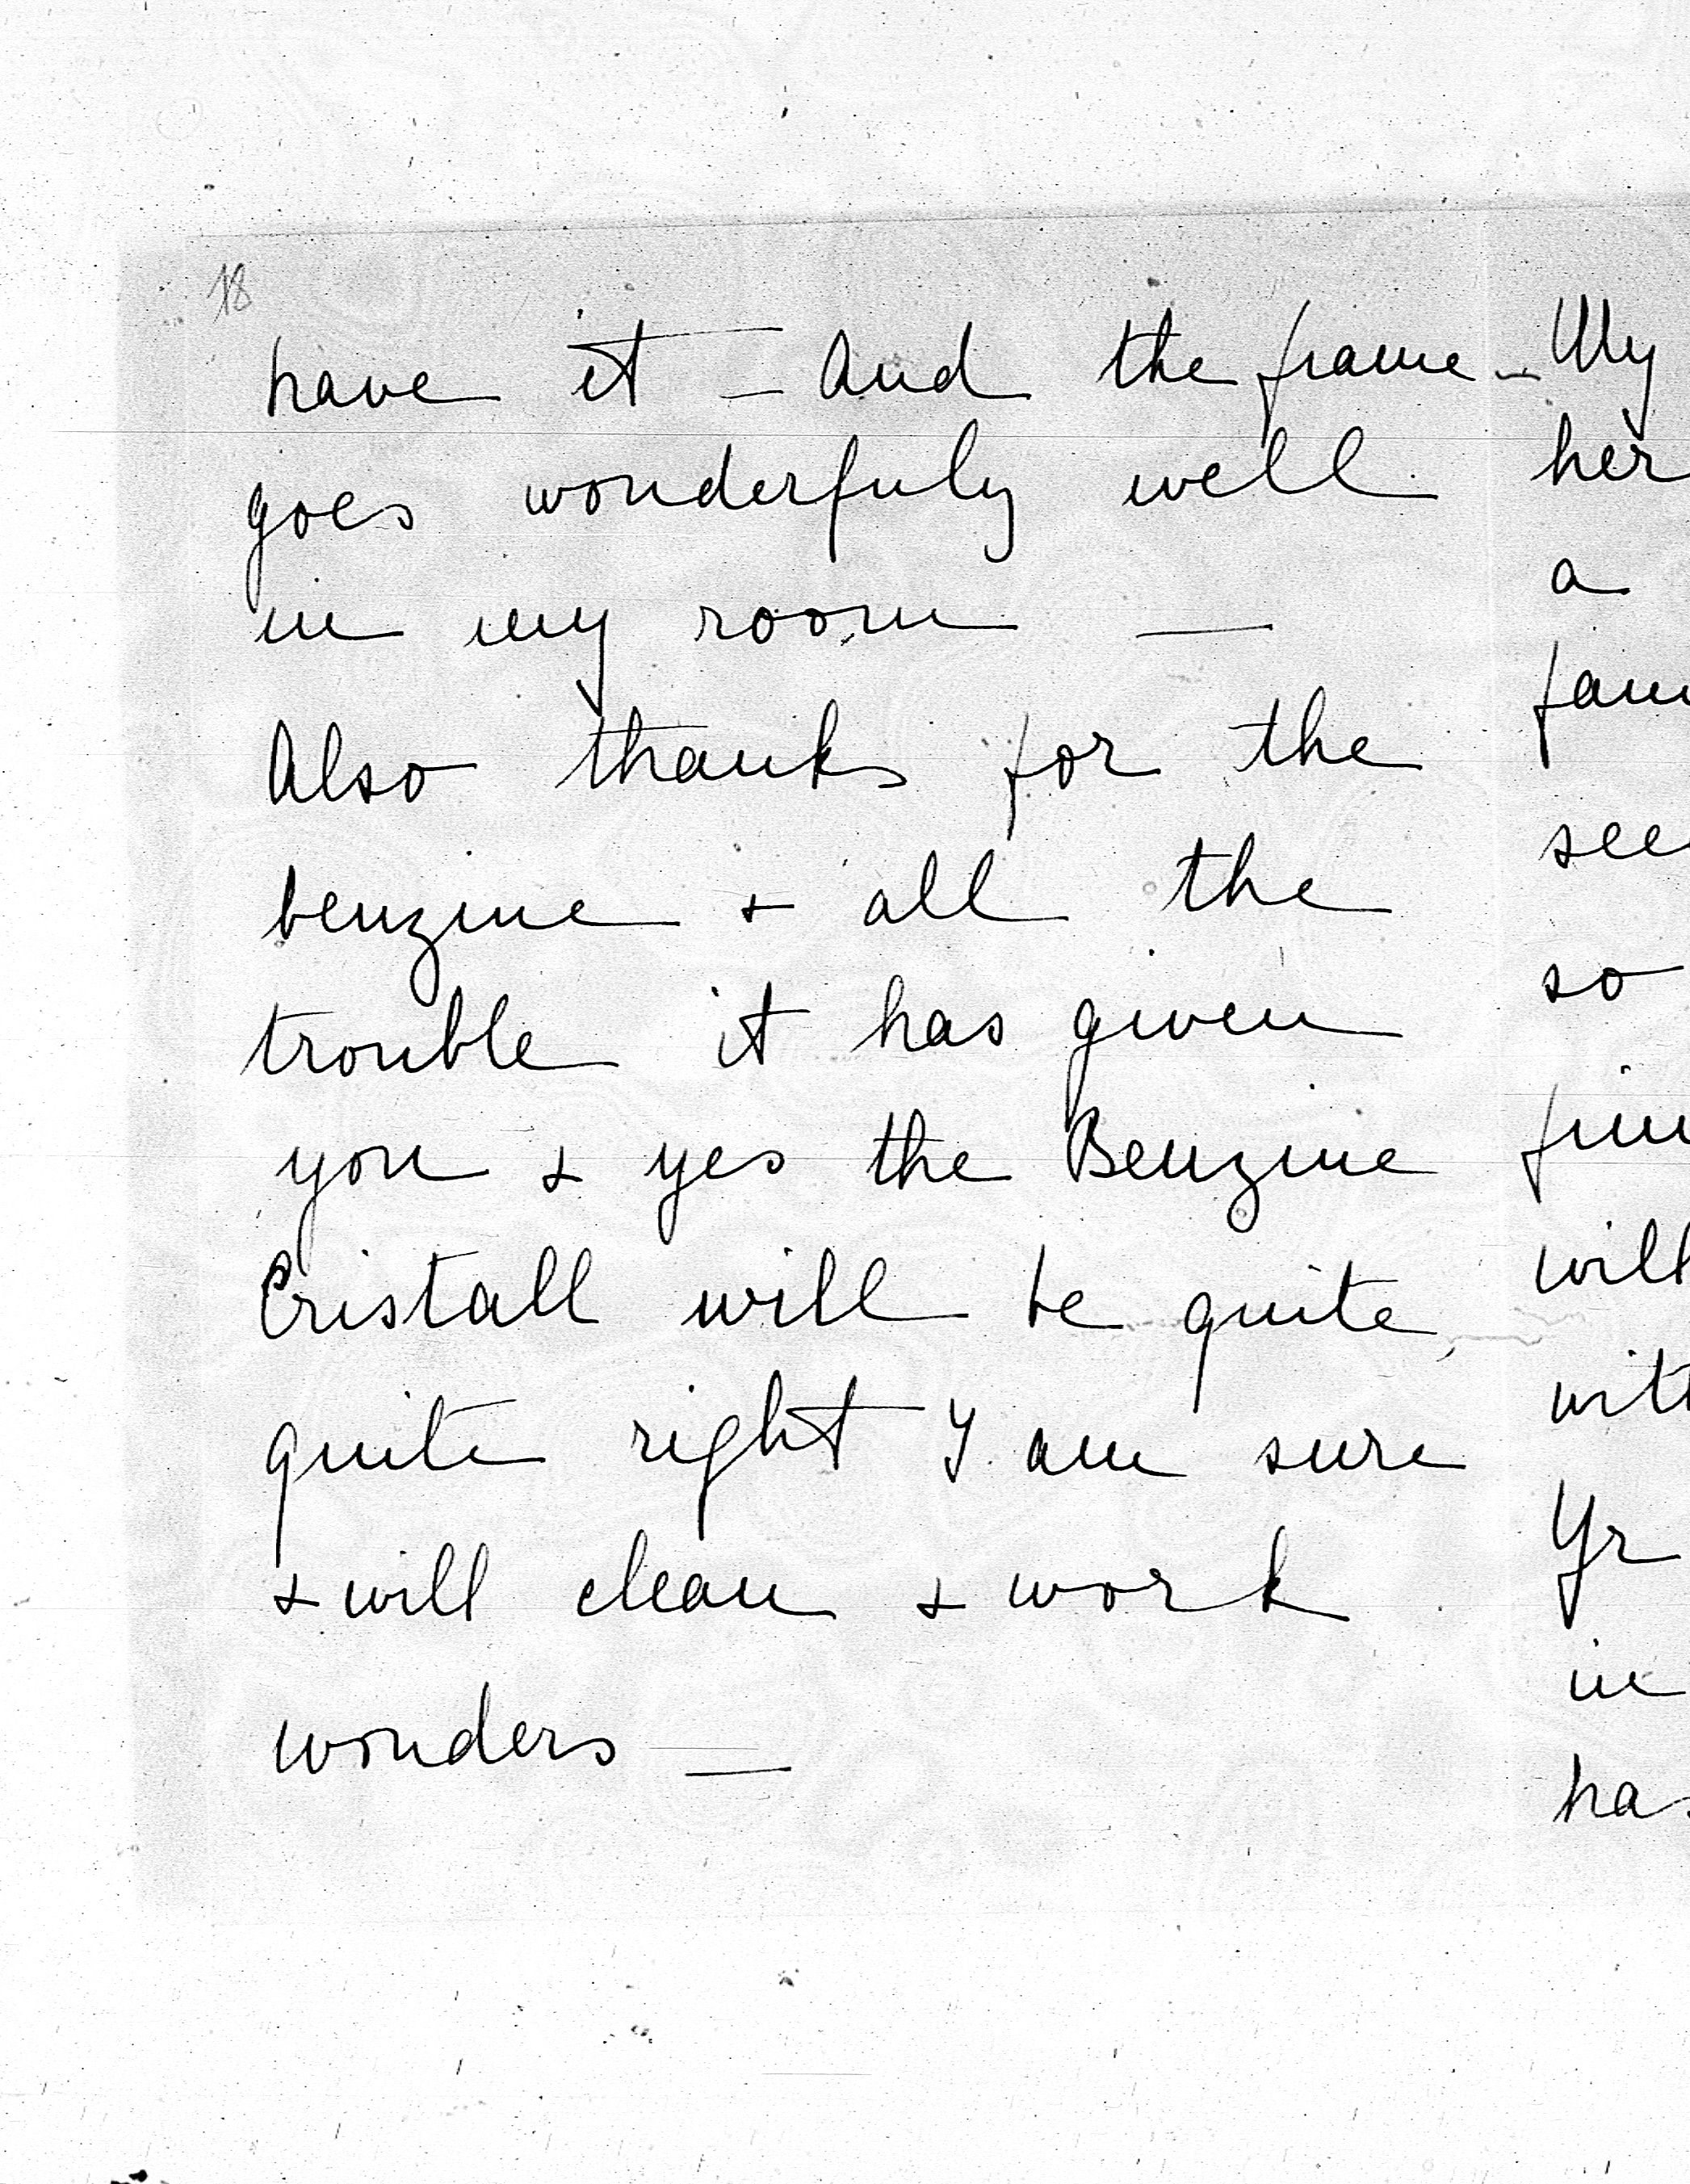 18
have it — And the frame —
goes wonderfuly well
in my room —
Also thanks for the
benzine & all the
trouble it has given
you & yes the Benzine
Cristall will be quite,
quite right I am sure
& will clean & work
wonders —
My
her
a
see
so
will
Yr
in